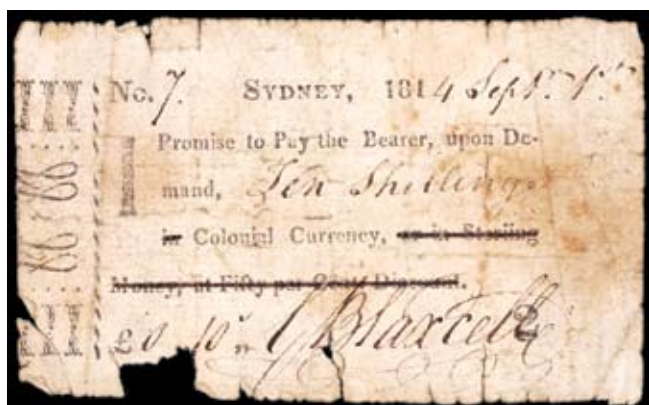 No. 7. SYDNEY, 1814 Septr. 1st.
I Promise to Pay the Bearer, upon De-
mand, Ten Shillings
in Colonial Currency, or in Sterling
Money, at Fifty per Cent. Discount.
£0 10s „ G Blaxcell